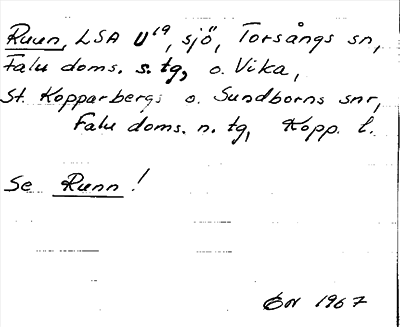 Ruun, LSA U¹⁹, sjö, Torsångs sn,
Falu doms. s. tg, o. Vika,
St. Kopparbergs o. Sundborns snr,
Falu doms. n. tg, Kopp. l.
Se Runn !
ÖN 1967